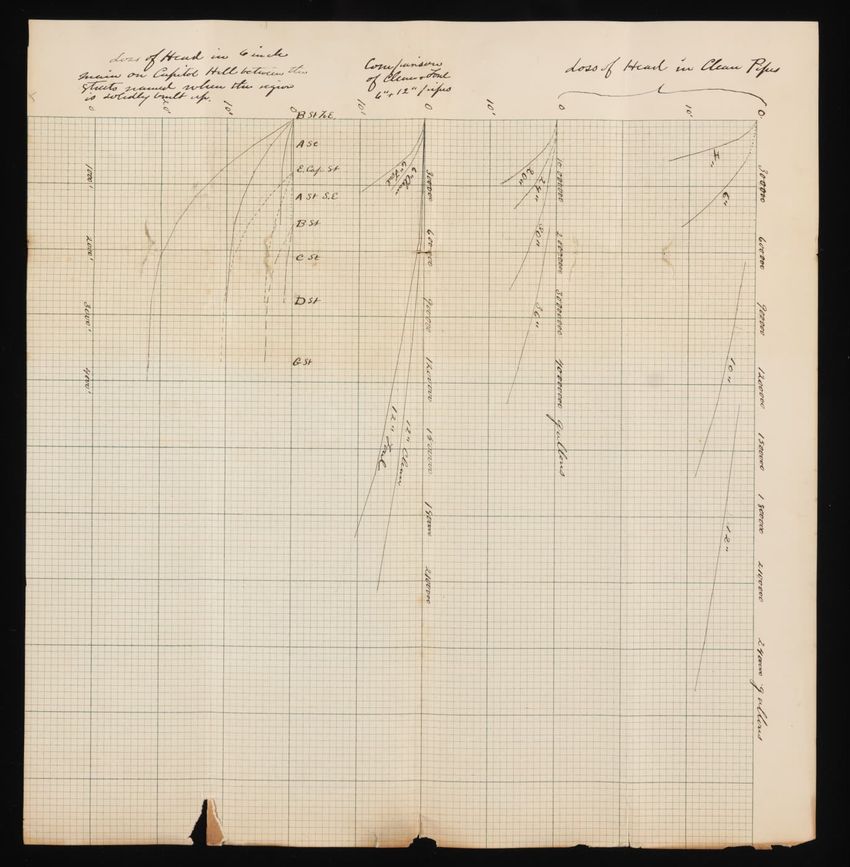 Loss of Head in 6 inch
main on Capitol Hill between the
Streets named when the region
is solidly built up.
Comparison
of Clean & Foul
6" & 12" pipes
Loss of Head in Clean Pipes
0
20'
10'
0
10'
0
10'
0
10'
0
B St N.E.
A St
E. Cap. St
A St S.E
B St
C St
D St
G St
1000'
2000'
3000'
4000'
6" Clean
6" Foul
12" Foul
12" Clean
300000
600000
900000
1200000
1500000
18000
2100000
20"
24"
30"
36"
10000000
20000000
30000000
40000000 gallons
4"
6"
10"
12"
300000
600000
900000
1200000
1500000
1800000
2100000
240000 gallons